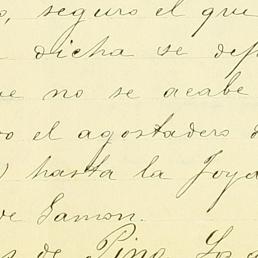 seguro el que
dicha se
no se acabe
el agostadero
hasta la Joya
de Samon.
de Pino. Los